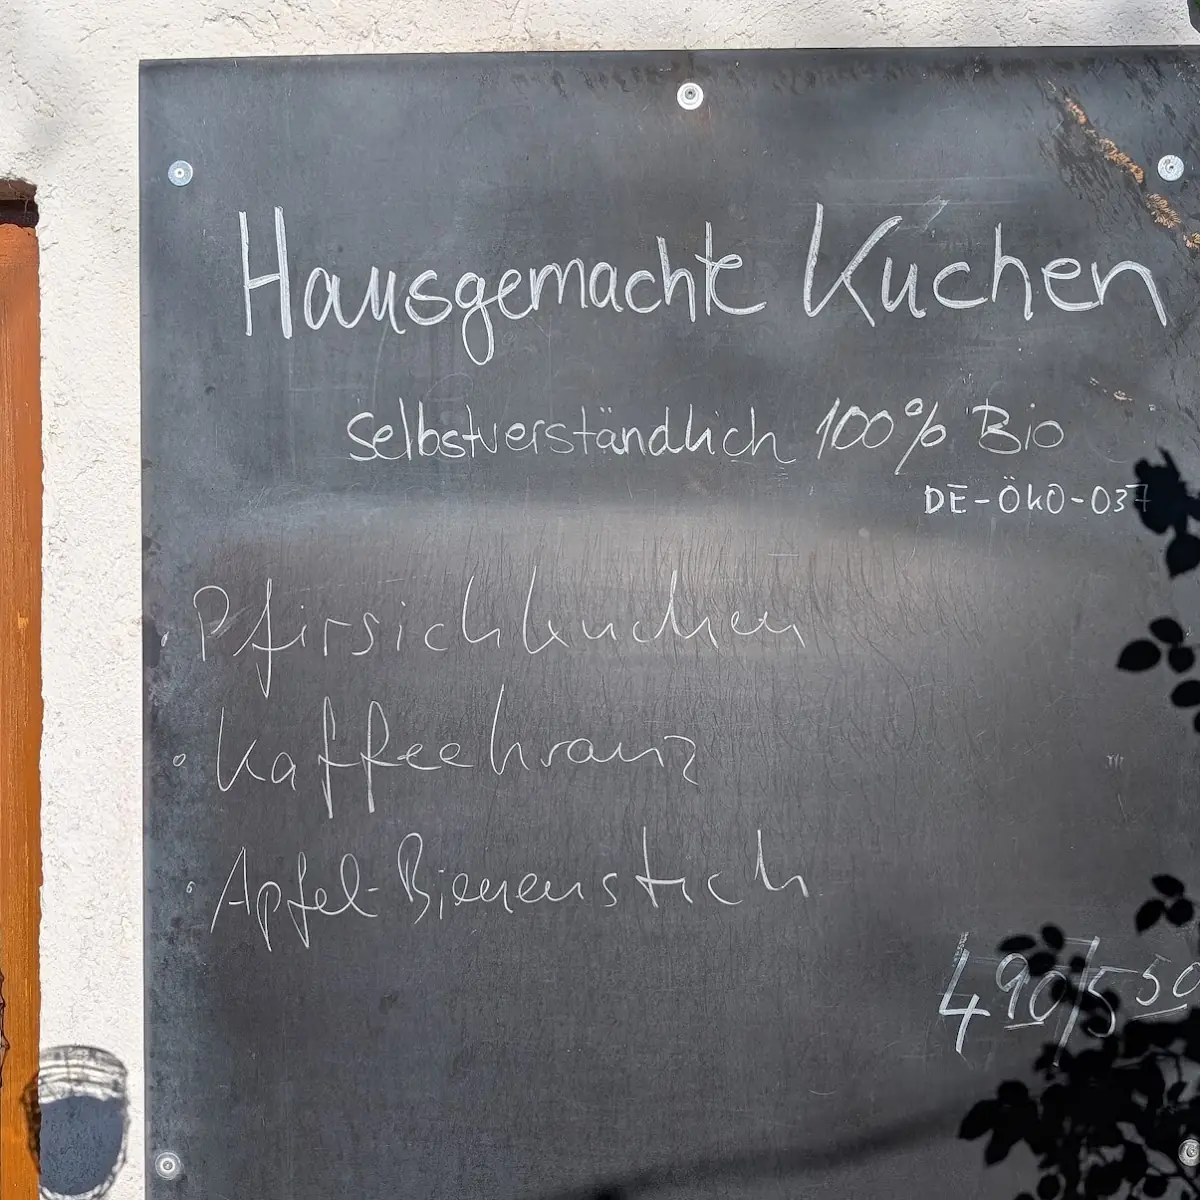 Hausgemachte Kuchen
selbstverständlich 100% Bio
DE-ÖKO-037
· Pfirsichkuchen
· Kaffeekranz
· Apfel-Bienenstich
4 90/5 50